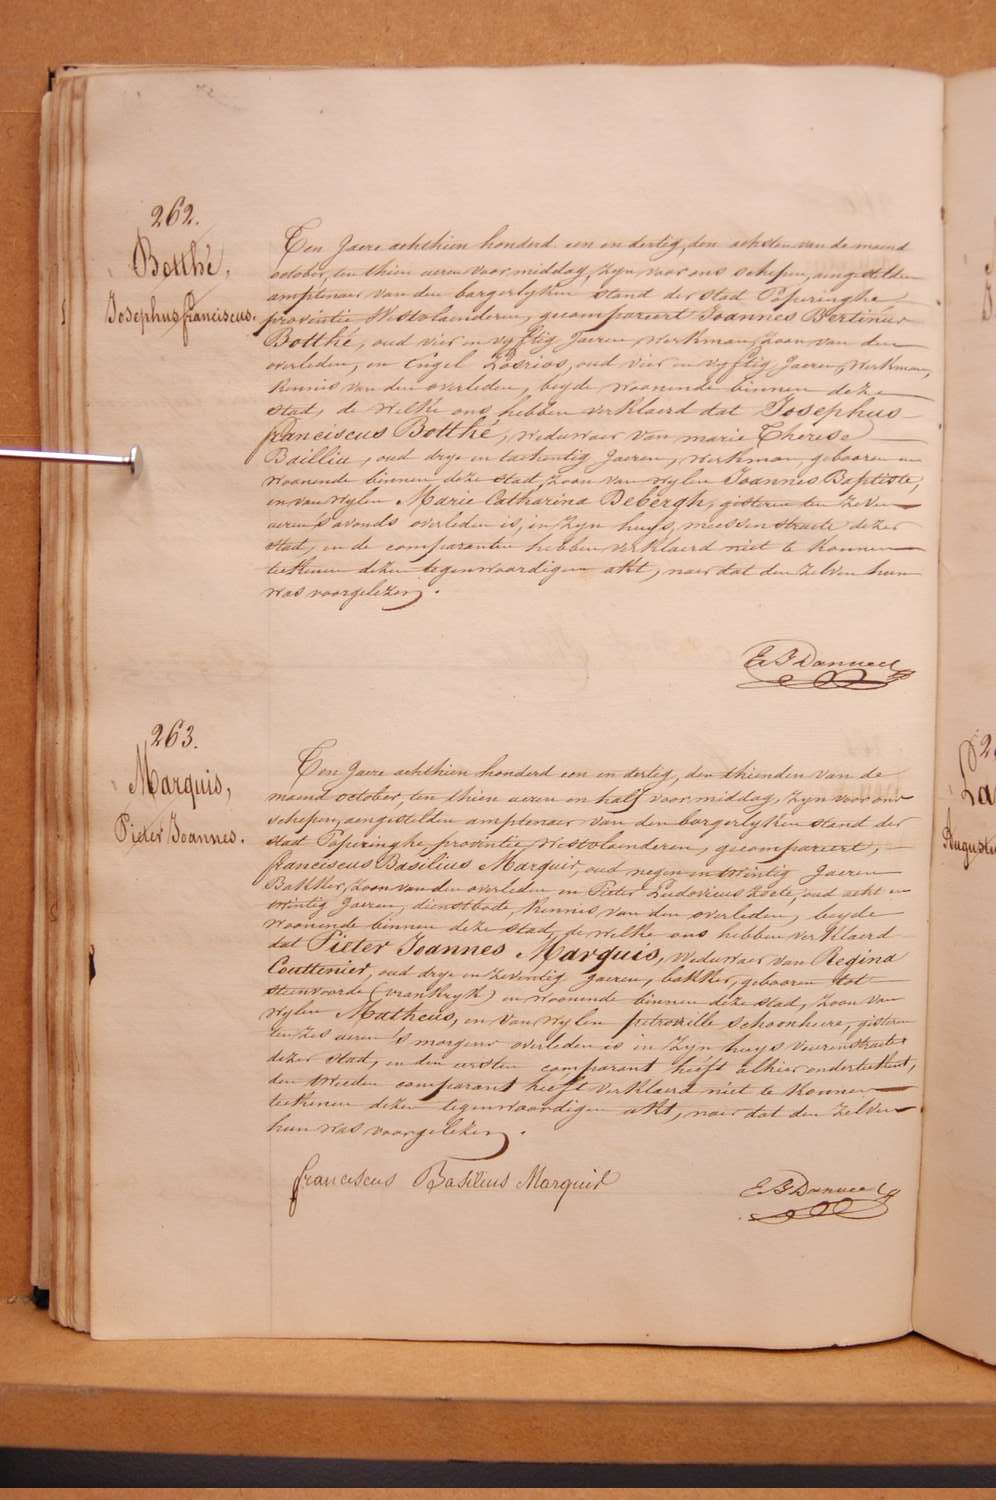 262.
Botthé,
Josephus franciscus.
Ten Jaere achthien honderd een en dertig, den achsten van de maend
october, ten thien ueren voor middag, zyn voor ons schepen, aengestelden
amptenaer van den borgerlyken stand der stad Poperinghe
provintie Westvlaenderen, gecompareert Joannes Bertinus
Botthé, oud vier en vyftig Jaeren, werkman, zoon van den
overleden, en Engel Losrios, oud vier en vyftig Jaeren, werkman,
kennis van den overleden, beyde woonende binnen deze
stad, de welke ons hebben verklaerd dat Josephus
franciscus Botthé, weduwaer van marie Therese
Bailliu, oud drye en tachentig Jaeren, werkman, gebooren en
woonende binnen deze stad, zoon van wylen Joannes Baptiste,
en van wylen Marie Catharina Debergh, gisteren ten zeven
ueren s'avonds overleden is, in zyn huys, meessenstraete dezer
stad, en de comparanten hebben verklaerd niet te konnen
teekenen dezen tegenwoordigen akt, naer dat den zelven hun
was voorgelezen.
E B Danneel
263.
Marquis,
Pieter Joannes.
Ten Jaere achthien honderd een en dertig, den thienden van de
maend october, ten thien ueren en half voor middag, zyn voor ons
schepen, aengestelden amptenaer van den borgerlyken stand der
stad Poperinghe, provintie Westvlaenderen, gecompareert,
franciscus Basilius Marquis, oud negen en twintig Jaeren
Bakker, zoon van den overleden en Pieter Ludovicus Zoete, oud acht en
twintig Jaeren, dienstbode, kennis van den overleden, beyde
woonende binnen deze stad, de welke ons hebben verklaerd
dat Pieter Joannes Marquis, weduwaer van Regina
Couttenier, oud drye en zeventig Jaeren, bakker, gebooren tot
steenvoorde (vrankryk) en woonende binnen deze stad, zoon van
wylen Matheus, en van wylen petronille schoonheere, gisteren
ten zes ueren 's morgens overleden is in zyn huys veurenstraete
dezer stad, en den eersten comparant heeft alhier onderteekent,
den tweeden comparant heeft verklaerd niet te konnen
teekenen dezen tegenwoordigen akt, naer dat den zelven
hun was voorgelezen.
franciscus Basilius Marquis
E B Danneel